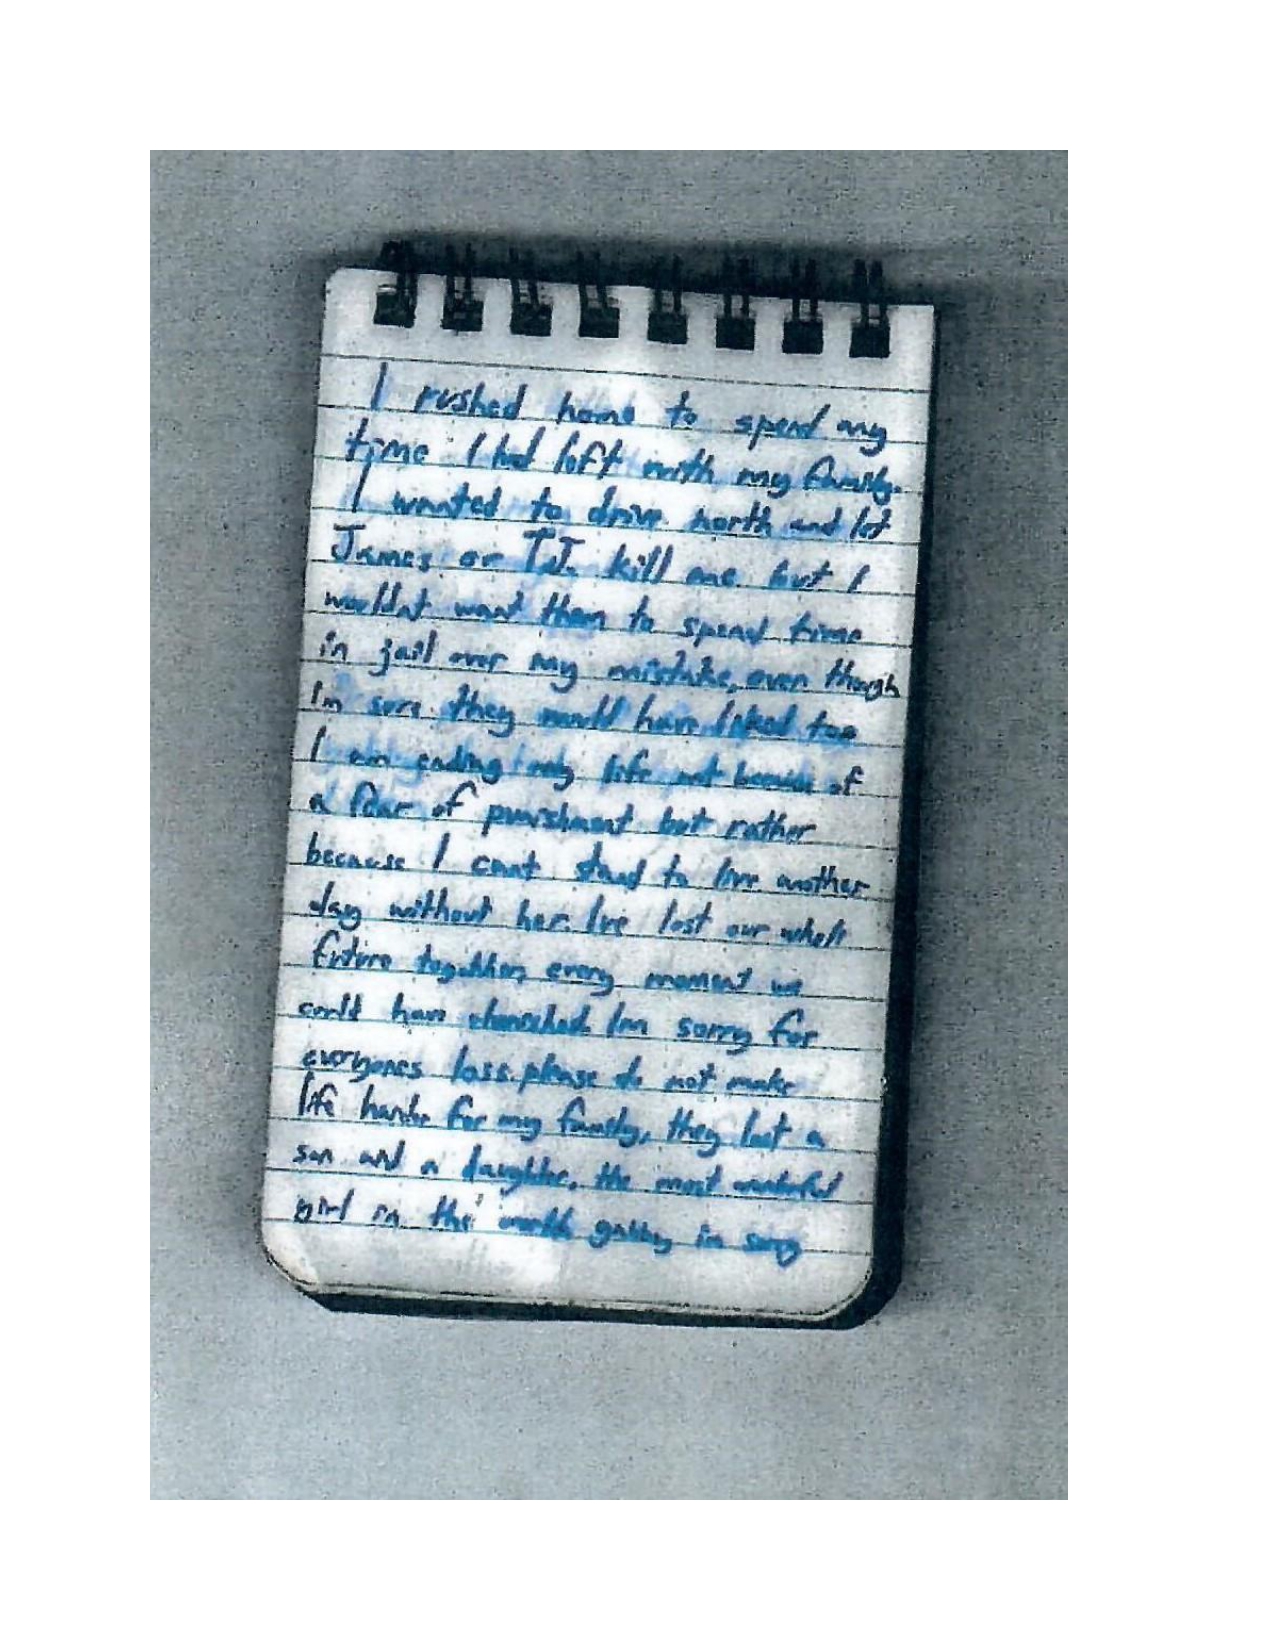 I rushed home to spend my
time I had left with my family.
I wanted to drive north and let
James or T.J. kill me but I
wouldnt want them to spend time
in jail over my mistake, even though
Im sure they would have liked too
I am ending my life not because of
a fear of punishment but rather
because I cant stand to live another
day without her. Ive lost our whole
future together, every moment we
could have cherished. Im sorry for
everyones loss. please do not make
life harder for my family, they lost a
son and a daughter. the most wonderful
girl in the world gabby im sorry